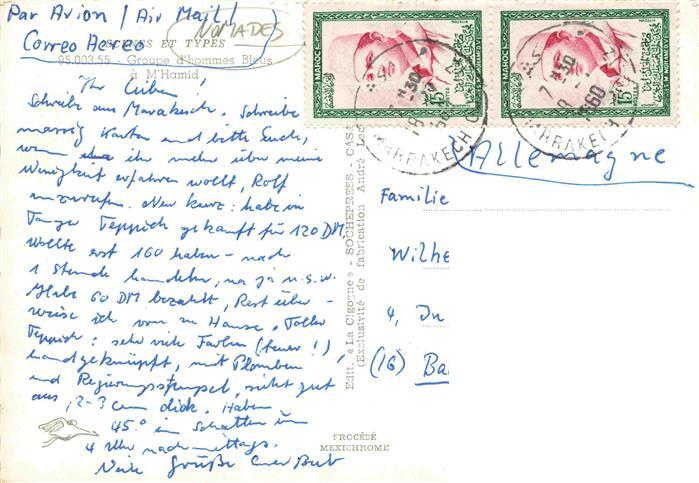 Par Avion / Air Mail /
Correo Aereo
NOMADES
SCÈNES ET TYPES
95.003.55 - Groupe d'hommes Bleus
à M'Hamid
Ihr Lieben!
Schreibe aus Marakesch. Schreibe
massig Karten und bitte Euch,
wenn ihr mehr über meine
Wenigkeit erfahren wollt, Rolf
anzurufen. Nur kurz: habe in
Tanger Teppich gekauft für 120 DM
Wollte erst 160 haben - nach
1 Stunde handeln, na ja u.s.w.
Habe 60 DM bezahlt, Rest über-
weise ich von zu Hause. Toller
Teppich: sehr viele Farben (teuer!),
handgeknüpft, mit Plomben
und Regierungsstempel, sieht gut
aus, 2-3 cm dick. Haben
45° im Schatten um
4 Uhr nachmittags.
Viele Grüße Euer Bub
Edit. « La Cigogne » - SOCHEPRESS, CASA
(Exclusivité de fabrication André Lec
PROCÉDÉ
MEXICHROME
MAROC
MAZELIN
15
S.M. MOHAMED V
MAROC
MAZELIN
15
S.M. MOHAMED V
MARRAKECH
MARRAKECH
Allemagne
Familie
Wilhe
4, In
(16) Ba